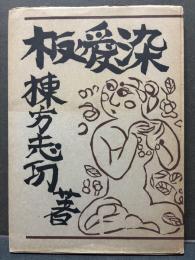 板愛染
棟方志功著